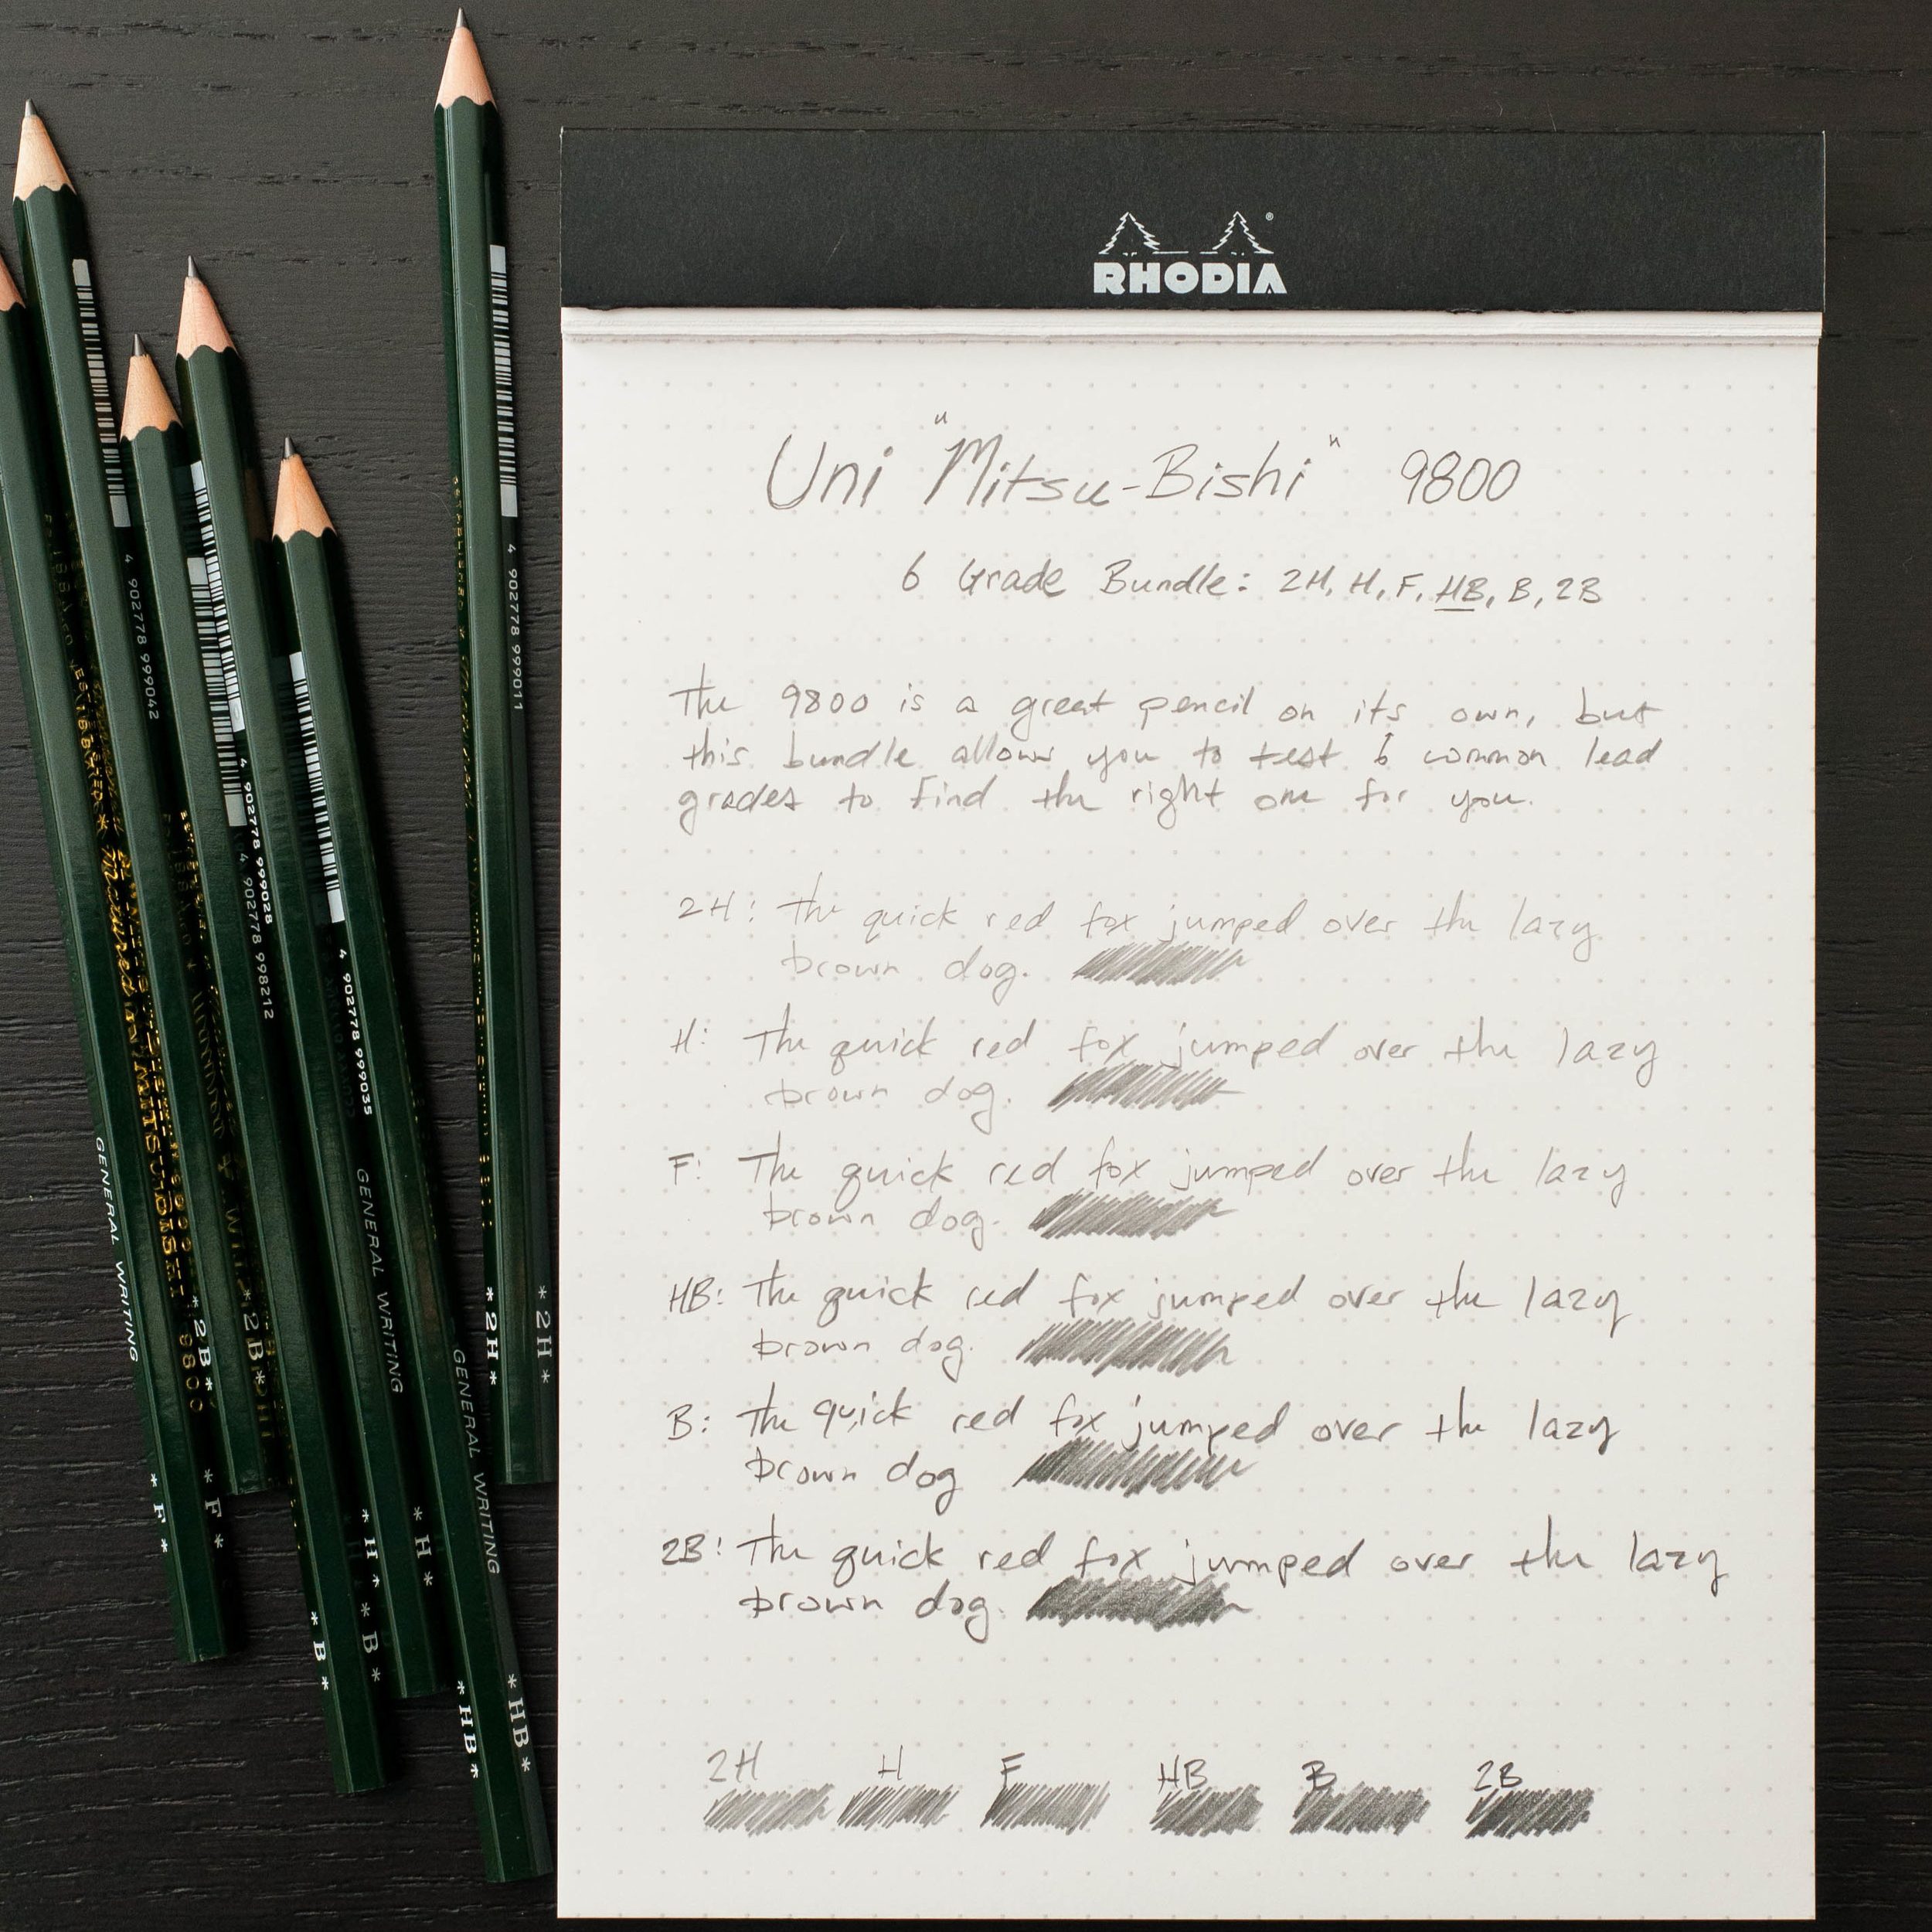 RHODIA
Uni "Mitsu-Bishi" 9800
6 Grade Bundle: 2H, H, F, HB, B, 2B
The 9800 is a great pencil on its own, but
this bundle allows you to test 6 common lead
grades to find the right one for you.
2H: The quick red fox jumped over the lazy
brown dog.
H: The quick red fox jumped over the lazy
brown dog.
F: The quick red fox jumped over the lazy
brown dog.
HB: The quick red fox jumped over the lazy
brown dog.
B: The quick red fox jumped over the lazy
brown dog
2B: The quick red fox jumped over the lazy
brown dog.
2H H F HB B 2B
4 902778 999042
4 902778 999028
4 902778 998212
4 902778 999035
4 902778 999011
GENERAL WRITING
GENERAL WRITING
GENERAL WRITING
MITSUBISHI 9800
*F*
*F*
*2B*
*2B*
*B*
*B*
*H*
*H*
*HB*
*HB*
*2H*
*2H*